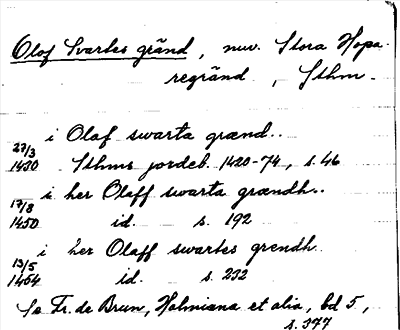 Olof Svartes gränd, nuv. Stora Hopa-
regränd, Sthm.
27/3 1430 i Olaf swarta grænd..
Sthms jordeb. 1420-74, s. 46
17/8 1450 i her Olaff swarta grændh..
id. s. 192
13/5 1454 i her Olaff swartes grendh
id. s. 232
Se Fr. de Brun, Holmiana et alia, bd 5,
s. 377